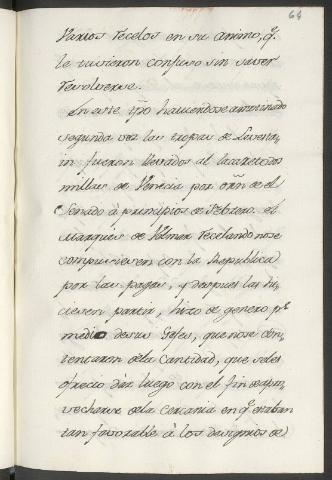 64
Varios recelos en su animo, q.
le tuvieron confuso sin saver
resolverse.
En este tpô haviendose amotinado
segunda vez las tropas de Levestn,
in fueron llevados al lazareto dos
millas de Venecia por ôrn de el
Senado à principios de Febrero. el
Marques de Velmar recelando no se
compusiesen con la Republica
por las pagas, y despues las hi,
ciesen partir, hizo de genero pr.
medio de sus Gefes, que no se con,
tentaron dela Cantidad, que seles
ofrecio dàr luego con el fin de apro,
vecharse dela cercania en q. estaban
tan favorable à los designios de